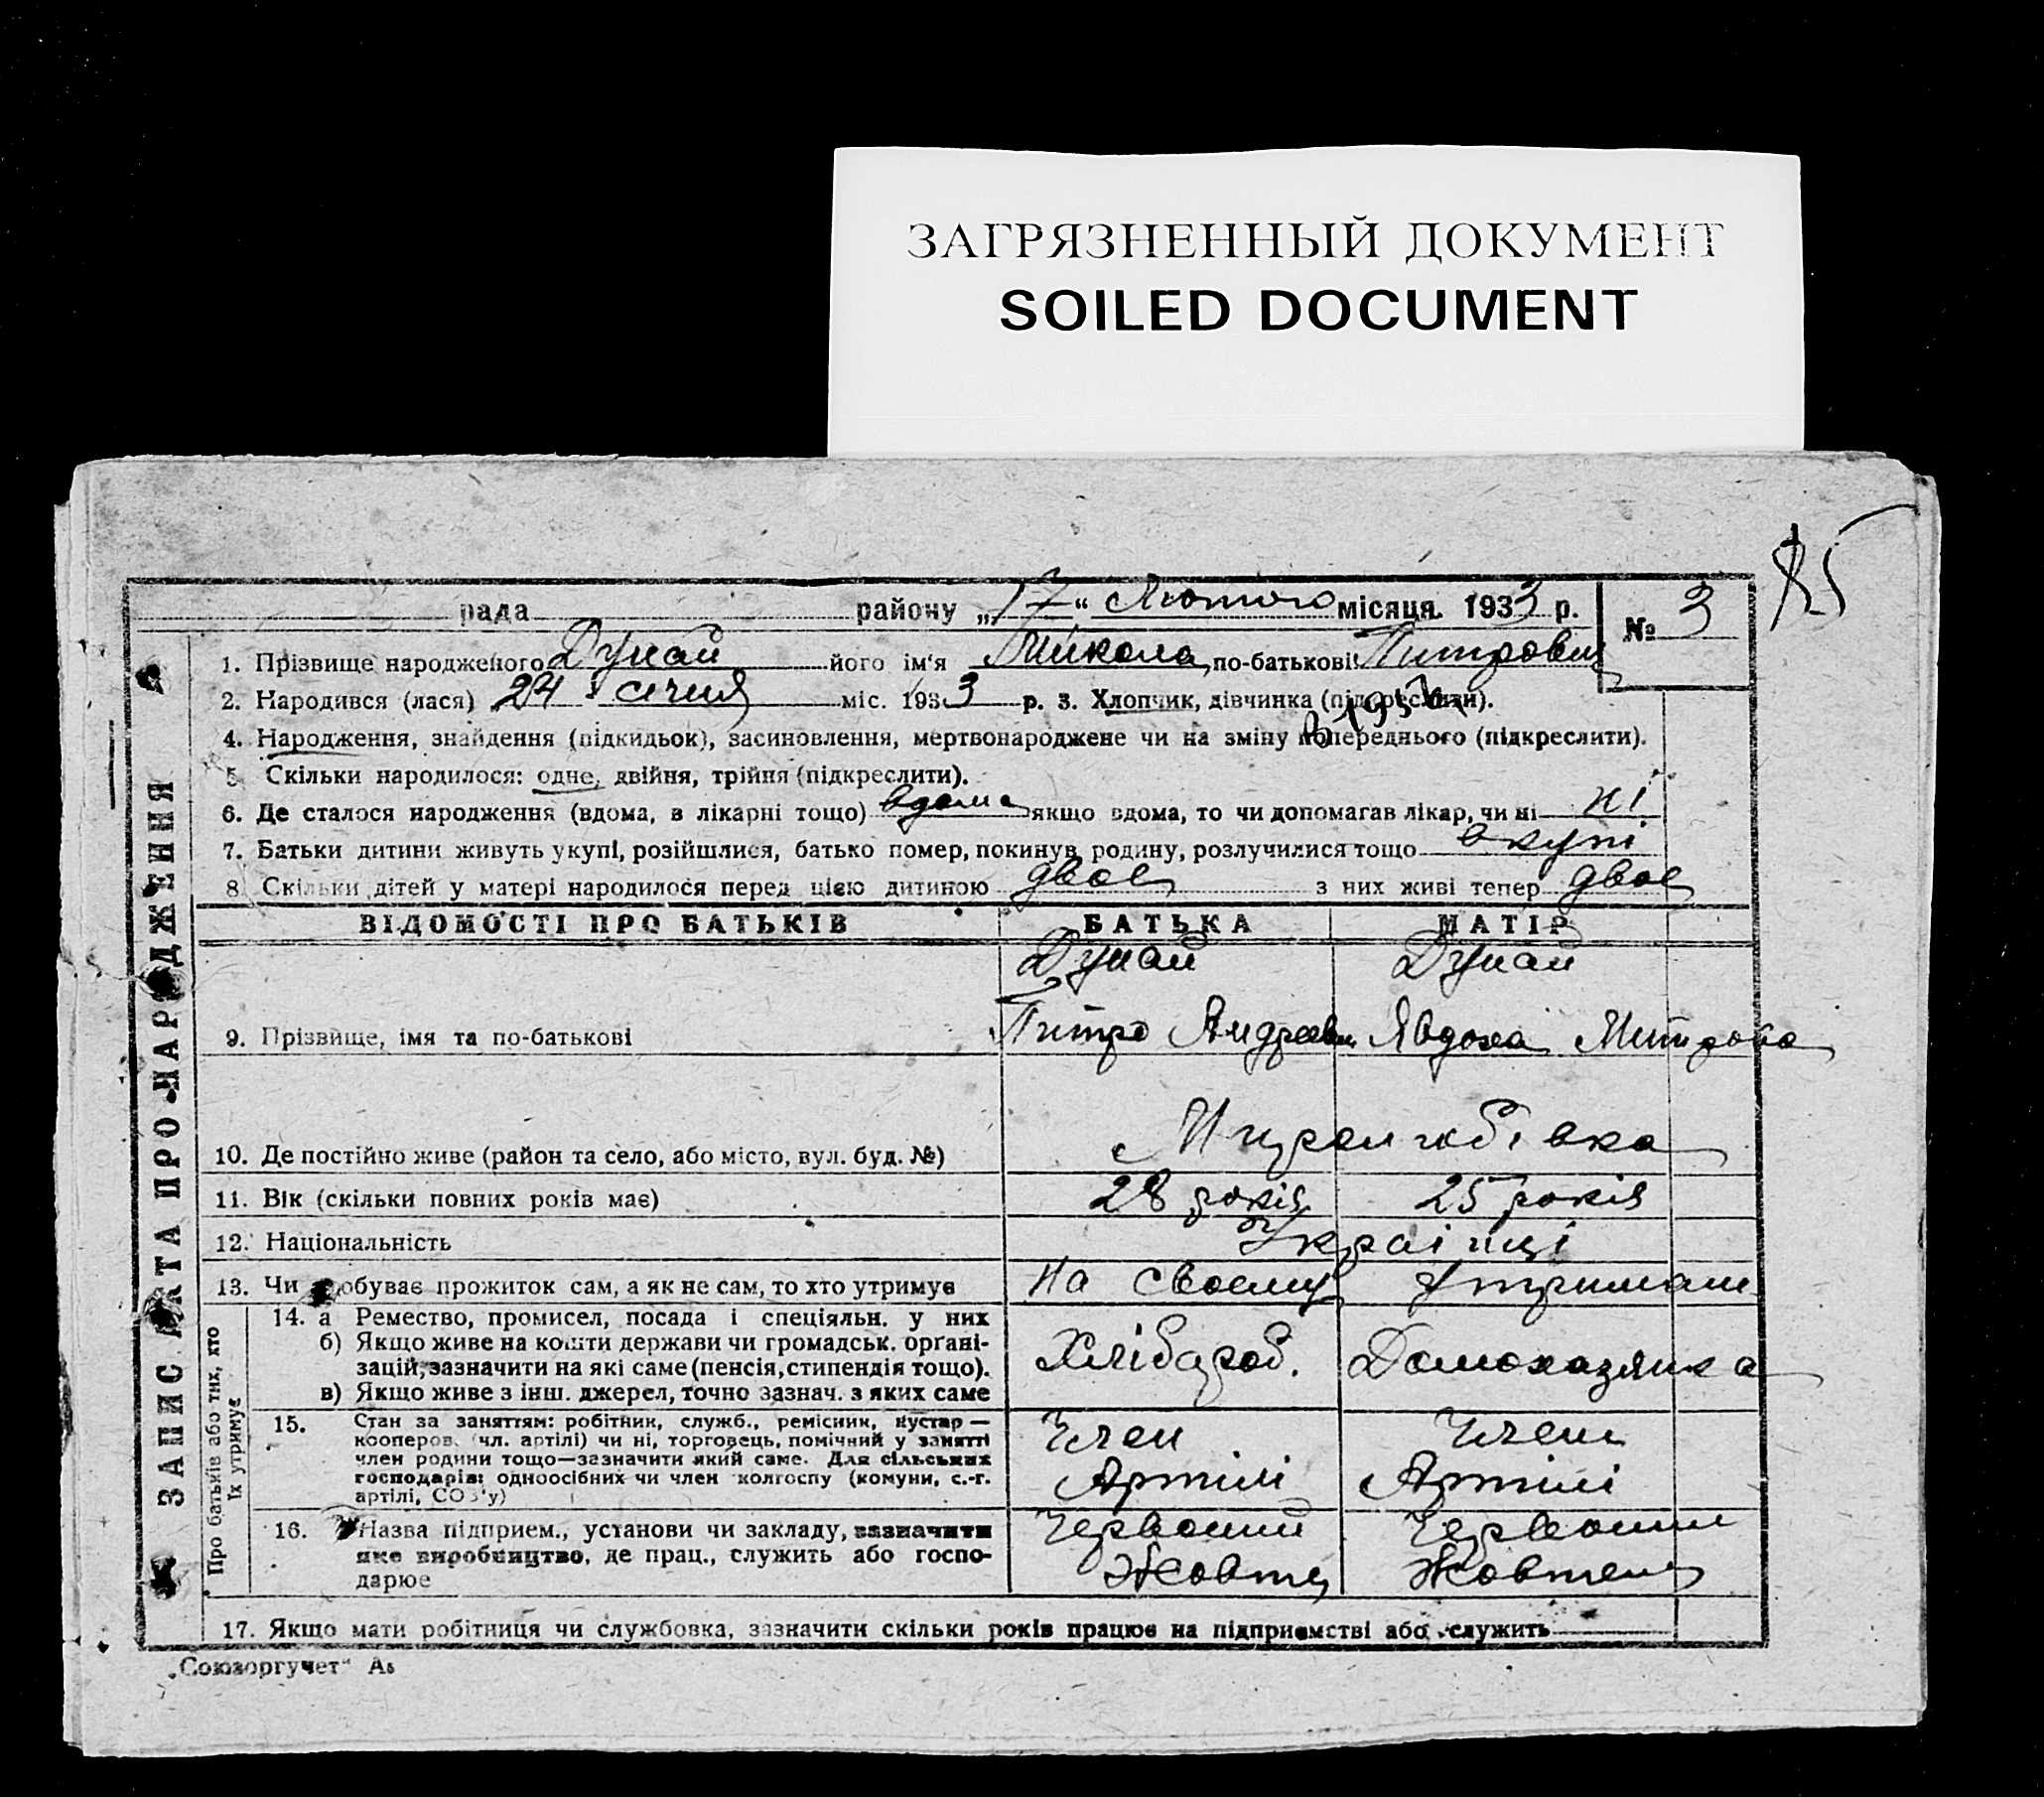 ЗАГРЯЗНЕННЫЙ ДОКУМЕНТ
SOILED DOCUMENT
85
рада району „17“ Лютого місяця 1933 р.
№ 3
1. Прізвище народженого Дунай його ім'я Микола, по-батькові Питрович
2. Народився (лася) 24 січня міс. 1933 р. 3. Хлопчик, дівчинка (підкреслити).
4. Народження, знайдення (підкидьок), засиновлення, мертвонароджене чи на зміну попереднього (підкреслити).
5 Скільки народилося: одне, двійня, трійня (підкреслити).
6. Де сталося народження (вдома, в лікарні тощо) вдома якщо вдома, то чи допомагав лікар, чи ні ні
7. Батьки дитини живуть укупі, розійшлися, батько помер, покинув родину, розлучилися тощо вкупі
8 Скільки дітей у матері народилося перед цією дитиною двоє з них живі тепер двоє
ЗАПИС АКТА ПРО НАРОДЖЕННЯ
ВІДОМОСТІ ПРО БАТЬКІВ БАТЬКА МАТІР
Дунай Дунай
9. Прізвище, імя та по-батькові Питро Андреев Явдоха Митровна
10. Де постійно живе (район та село, або місто, вул. буд. №)
11. Вік (скільки повних років має) 28 років 25 років
12. Національність Українці
13. Чи добуває прожиток сам, а як не сам, то хто утримує на своєму утриман
Про батьків або тих, хто їх утримує
14. а Ремество, промисел, посада і спеціяльн. у них
б) Якщо живе на кошти держави чи громадськ. органі-
зацій, зазначити на які саме (пенсія, стипендія тощо). Хлібороб. Домохазяйка
в) Якщо живе з інш. джерел, точно зазнач. з яких саме
15. Стан за заняттям: робітник, служб., ремісник, кустар — Член Член
кооперов. (чл. артілі) чи ні, торговець, помічний у занятті
член родини тощо—зазначити який саме. Для сільських
господарів: одноосібних чи член колгоспу (комуни, с.-г. Артілі Артілі
артілі, СОЗ'у)
16. Назва підприєм., установи чи закладу, зазначити Червоний Червоний
яке виробництво, де прац., служить або госпо- Жовтен Жовтень
дарює
17. Якщо мати робітниця чи службовка, зазначити скільки років працює на підприємстві або служить
„Союзоргучет“